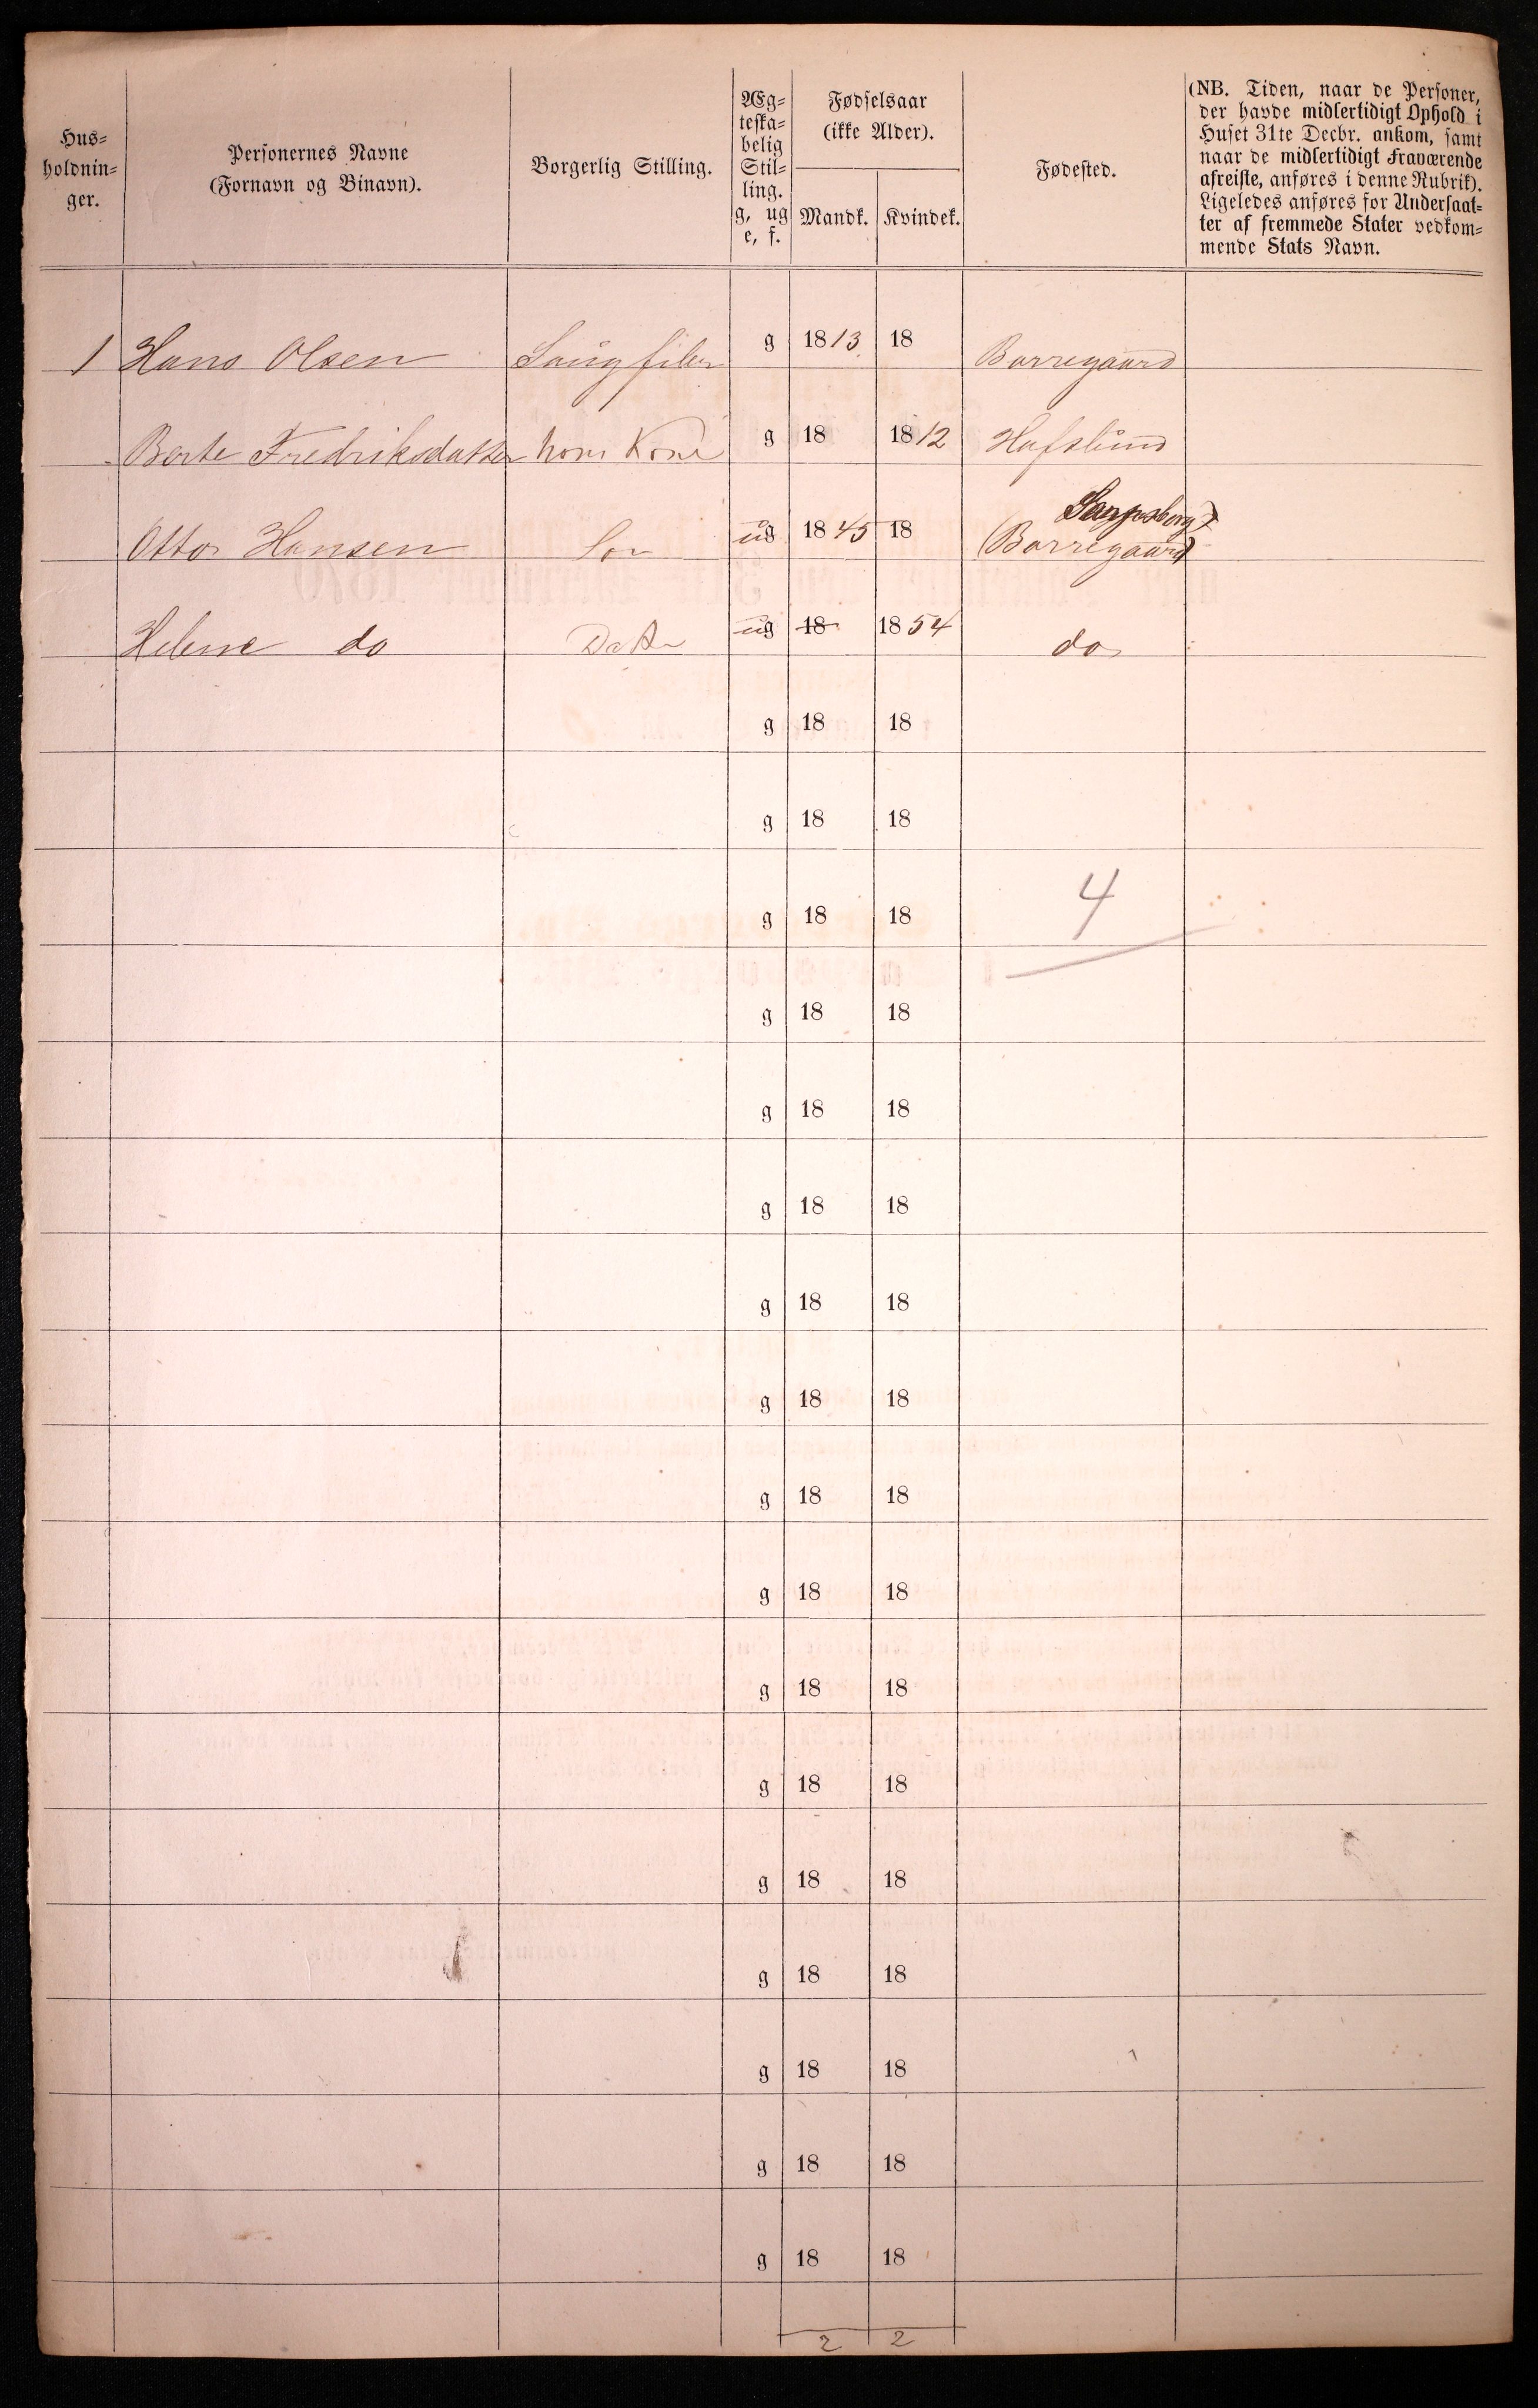 Hus-
holdnin-
ger.
Personernes Navne
(Fornavn og Binavn).
Borgerlig Stilling.
Æg-
teska-
belig
Stil-
ling.
g, ug
e, f.
Fødselsaar
(ikke Alder).
Mandk. Kvindek.
Fødested.
(NB. Tiden, naar de Personer,
der havde midlertidigt Ophold i
Huset 31te Decbr. ankom, samt
naar de midlertidigt Fraværende
afreiste, anføres i denne Rubrik).
Ligeledes anføres for Undersaat-
ter af fremmede Stater vedkom-
mende Stats Navn.
1 Hans Olsen Saugfiler g 1813 18 Borregaard
Berte Fredriksdatter hans Kone g 18 1812 Hafslund
Sarpsborg
Otto Hansen Søn ug 1845 18 (Borregaard)
Helene do Datter ug 18 1854 do
g 18 18
g 18 18
g 18 18 4
g 18 18
g 18 18
g 18 18
g 18 18
g 18 18
g 18 18
g 18 18
g 18 18
g 18 18
g 18 18
g 18 18
g 18 18
g 18 18
g 18 18
2 2